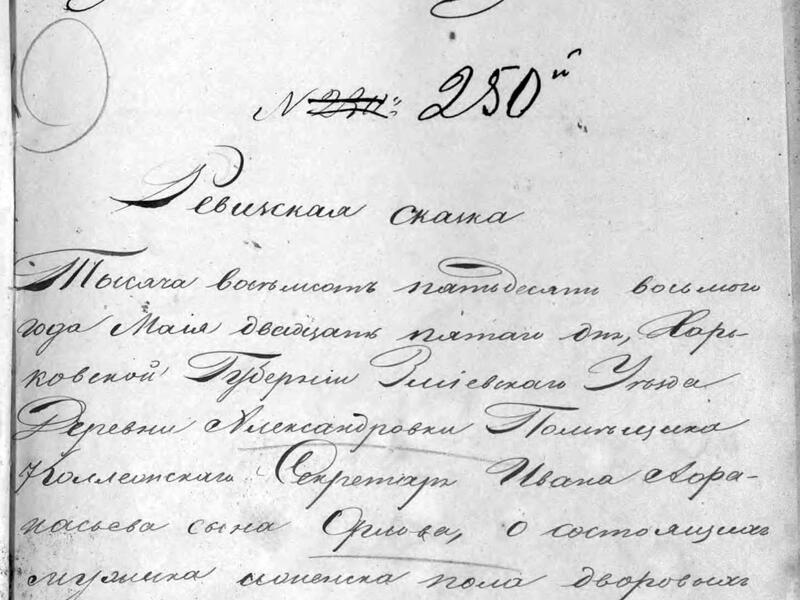 № 230: 250й
Ревизская сказка
Тысяча восемьсотъ пятьдесятъ восьмого
года Маія двадцать пятаго дня, Харь-
ковской Губерніи Зміевскаго Уезда
Деревни Александровки Помѣщика
Коллежскаго Секретаря Ивана Афа-
насьева сына Орлова, о состоящихъ
мужеска женска пола дворовыхъ